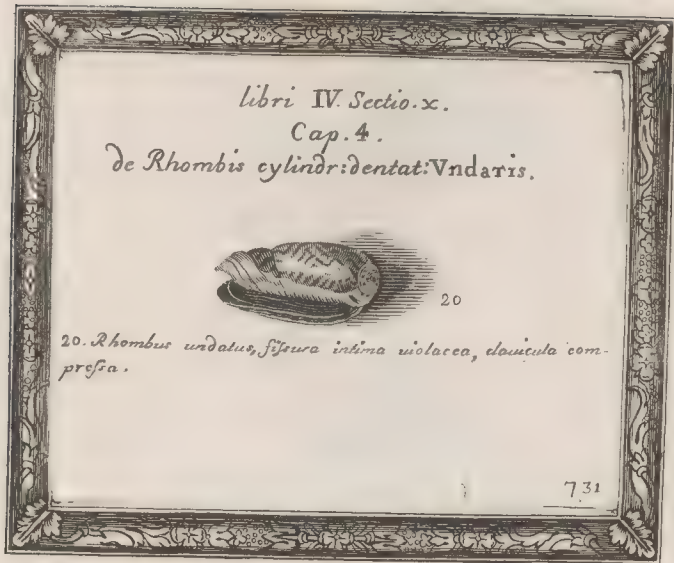 libri IV. Sectio.x.
Cap. 4.
de Rhombis cylindr:dentat:Vndaris.
20
20. Rhombus undatus, fiſsura intima uiolacea, clauicula com-
preſsa.
731